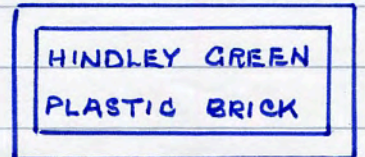 HINDLEY GREEN
PLASTIC BRICK